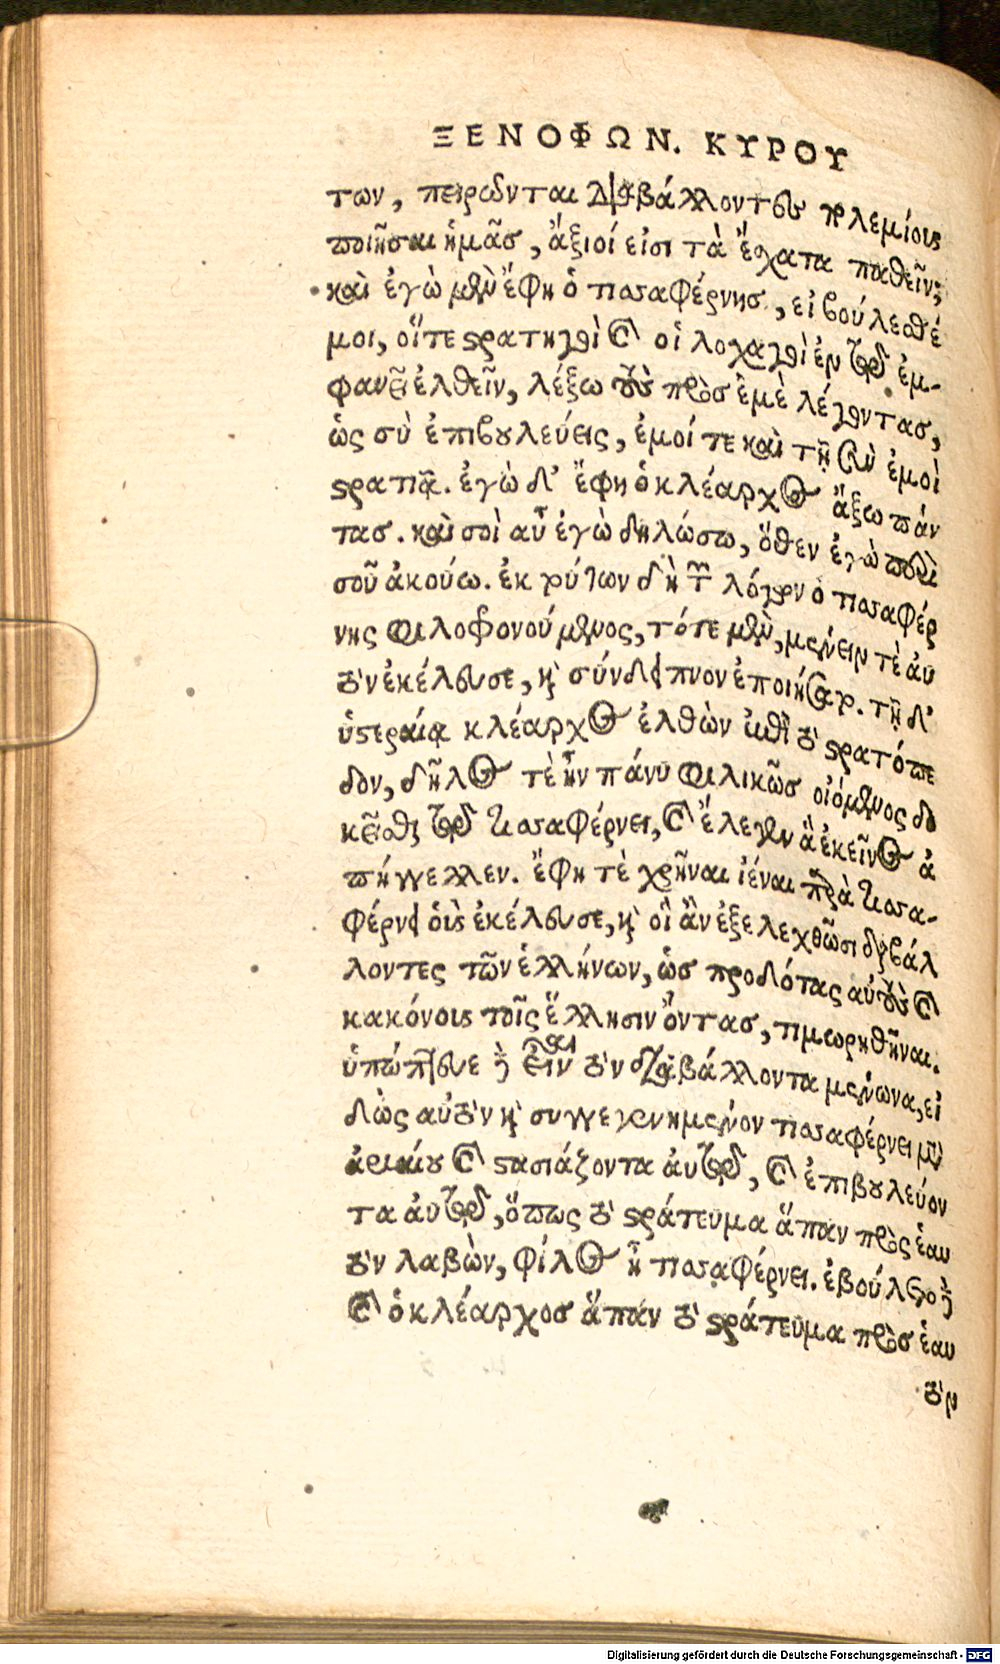 ΞΕΝΟΦΩΝ. ΚΥΡΟΥ
των, πειρῶνται διαβάλλοντες πολεμίους
ποιῆσαι ἡμᾶσ, ἄξιοί εἰσι τὰ ἔσχατα παθεῖν;
καὶ ἐγὼ μὲν ἔφη ὁ τισσαφέρνησ, εἰ βούλεσθέ
μοι, οἵτε στρατηγοὶ καὶ οἱ λοχαγοὶ ἐν τῷ ἐμ-
φανεῖ ἐλθεῖν, λέξω τοὺς πρὸσ ἐμὲ λέγοντασ,
ὡς σὺ ἐπιβουλεύεις, ἐμοί τε καὶ τῇ σὺν ἐμοὶ
στρατιᾷ. ἐγὼ δ' ἔφη ὁ κλέαρχος ἄξω πάν
τασ. καὶ σοὶ αὖ ἐγὼ δηλώσω, ὅθεν ἐγὼ περὶ
σοῦ ἀκούω. ἐκ τούτων δὴ τῶν λόγων ὁ τισσαφέρ
νης φιλοφρονούμενος, τότε μὲν, μένειν τὲ αὐ
τὸν ἐκέλευσε, καὶ σύνδειπνον ἐποιήσατο. τῇ δ'
ὑστεραίᾳ κλέαρχος ἐλθὼν ἐπὶ τὸ στρατόπε
δον, δῆλος τὲ ἦν πάνυ φιλικῶσ οἰόμενος δια
κεῖσθαι τῷ τισσαφέρνει, καὶ ἔλεγεν ἃ ἐκεῖνος ἀ
πήγγελλεν. ἔφη τὲ χρῆναι ἰέναι παρὰ τισσα-
φέρνει οὓς ἐκέλευσε, καὶ οἳ ἂν ἐξελεχθῶσι διαβάλ
λοντες τῶν ἑλλήνων, ὡσ προδότας αὐτοὺς καὶ
κακόνους τοῖς ἕλλησιν ὄντασ, τιμωρηθῆναι.
ὑπώπτευε δὲ εἶναι τὸν διαβάλλοντα μένωνα, εἰ
δὼς αὐτὸν καὶ συγγεγενημένον τισσαφέρνει μετ'
ἀριαίου καὶ στασιάζοντα αὐτῷ, καὶ ἐπιβουλεύον
τα αὐτῷ, ὅπως τὸ στράτευμα ἅπαν πρὸς ἑαυ
τὸν λαβὼν, φίλος ᾖ τισσαφέρνει. ἐβούλετο δὲ
καὶ ὁ κλέαρχοσ ἅπαν τὸ στράτευμα πρὸσ ἑαυ
τὸν
Digitalisierung gefördert durch die Deutsche Forschungsgemeinschaft - DFG